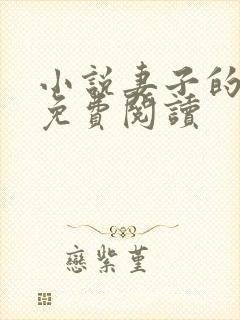 小說妻子的
免費閱讀
戀紫堇